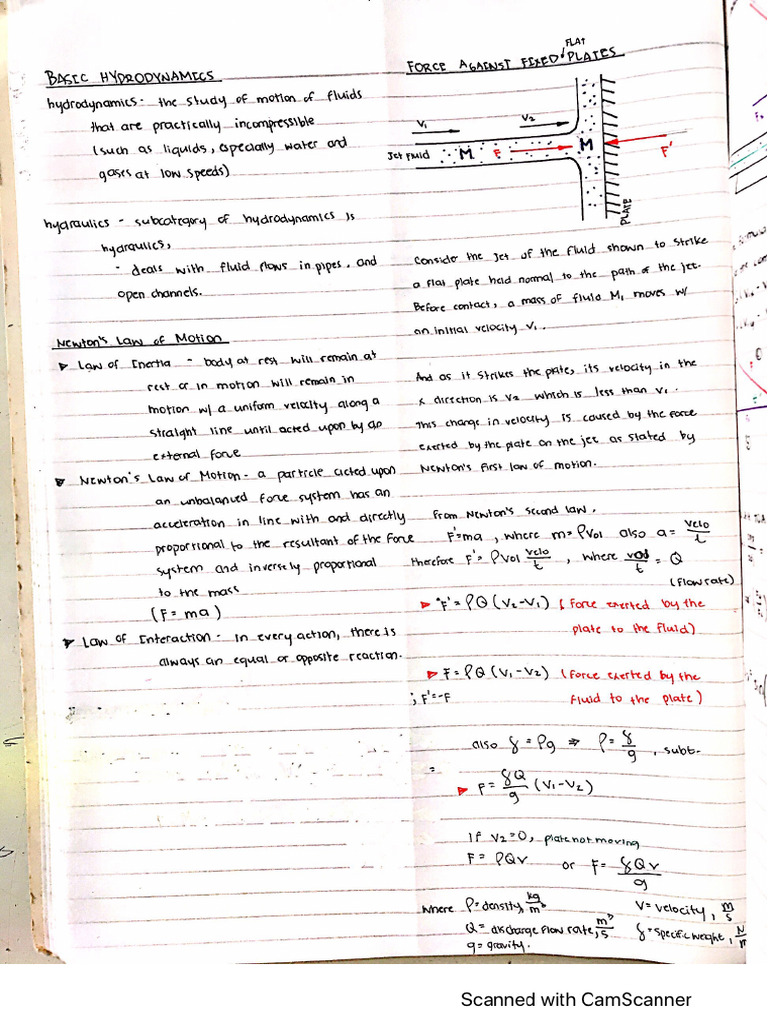 BASIC HYDRODYNAMICS
hydrodynamics - the study of motion of fluids
that are practically incompressible
(such as liquids, especially water and
gases at low speeds)
hydraulics - subcategory of hydrodynamics is
hydraulics,
- deals with fluid flows in pipes, and
open channels.
NEWTON'S LAW OF MOTION
➤ Law of Inertia - body at rest will remain at
rest or in motion will remain in
motion w/ a uniform velocity along a
straight line until acted upon by an
external force
➤ NEWTON'S LAW OF MOTION - a particle acted upon
an unbalanced force system has an
acceleration in line with and directly
proportional to the resultant of the force
system and inversely proportional
to the mass
(F = ma)
➤ LAW OF Interaction - In every action, there is
always an equal or opposite reaction.
FORCE AGAINST FIXED FLAT PLATES
V₁
V₂
Jet Fluid
M
F
M
F'
PLATE
Consider the Jet of the Fluid shown to strike
a flat plate held normal to the path of the jet.
Before contact, a mass of fluid M, moves w/
an initial velocity V₁.
And as it strikes the plate, its velocity in the
x direction is V₂ which is less than V₁.
This change in velocity is caused by the force
exerted by the plate on the jet as stated by
Newton's first law of motion.
From Newton's second law.
F'=ma, where m=ρVol also a= velo/t
therefore F'= ρVol velo/t, where vol/t = Q
(flow rate)
➤ "F' = ρQ (V₂-V₁) (force exerted by the
plate to the fluid)
➤ F = ρQ (V₁-V₂) (force exerted by the
; F'=-F fluid to the plate)
also γ = ρg ⇒ ρ = γ/g, subt.
=
➤ F = γQ/g (V₁-V₂)
If V₂=0, plate not moving
F = ρQv or F = γQv/g
where ρ = density, kg/m³ V = velocity, m/s
Q = discharge flow rate, m³/s γ = specific weight, N/m
g = gravity.
Scanned with CamScanner